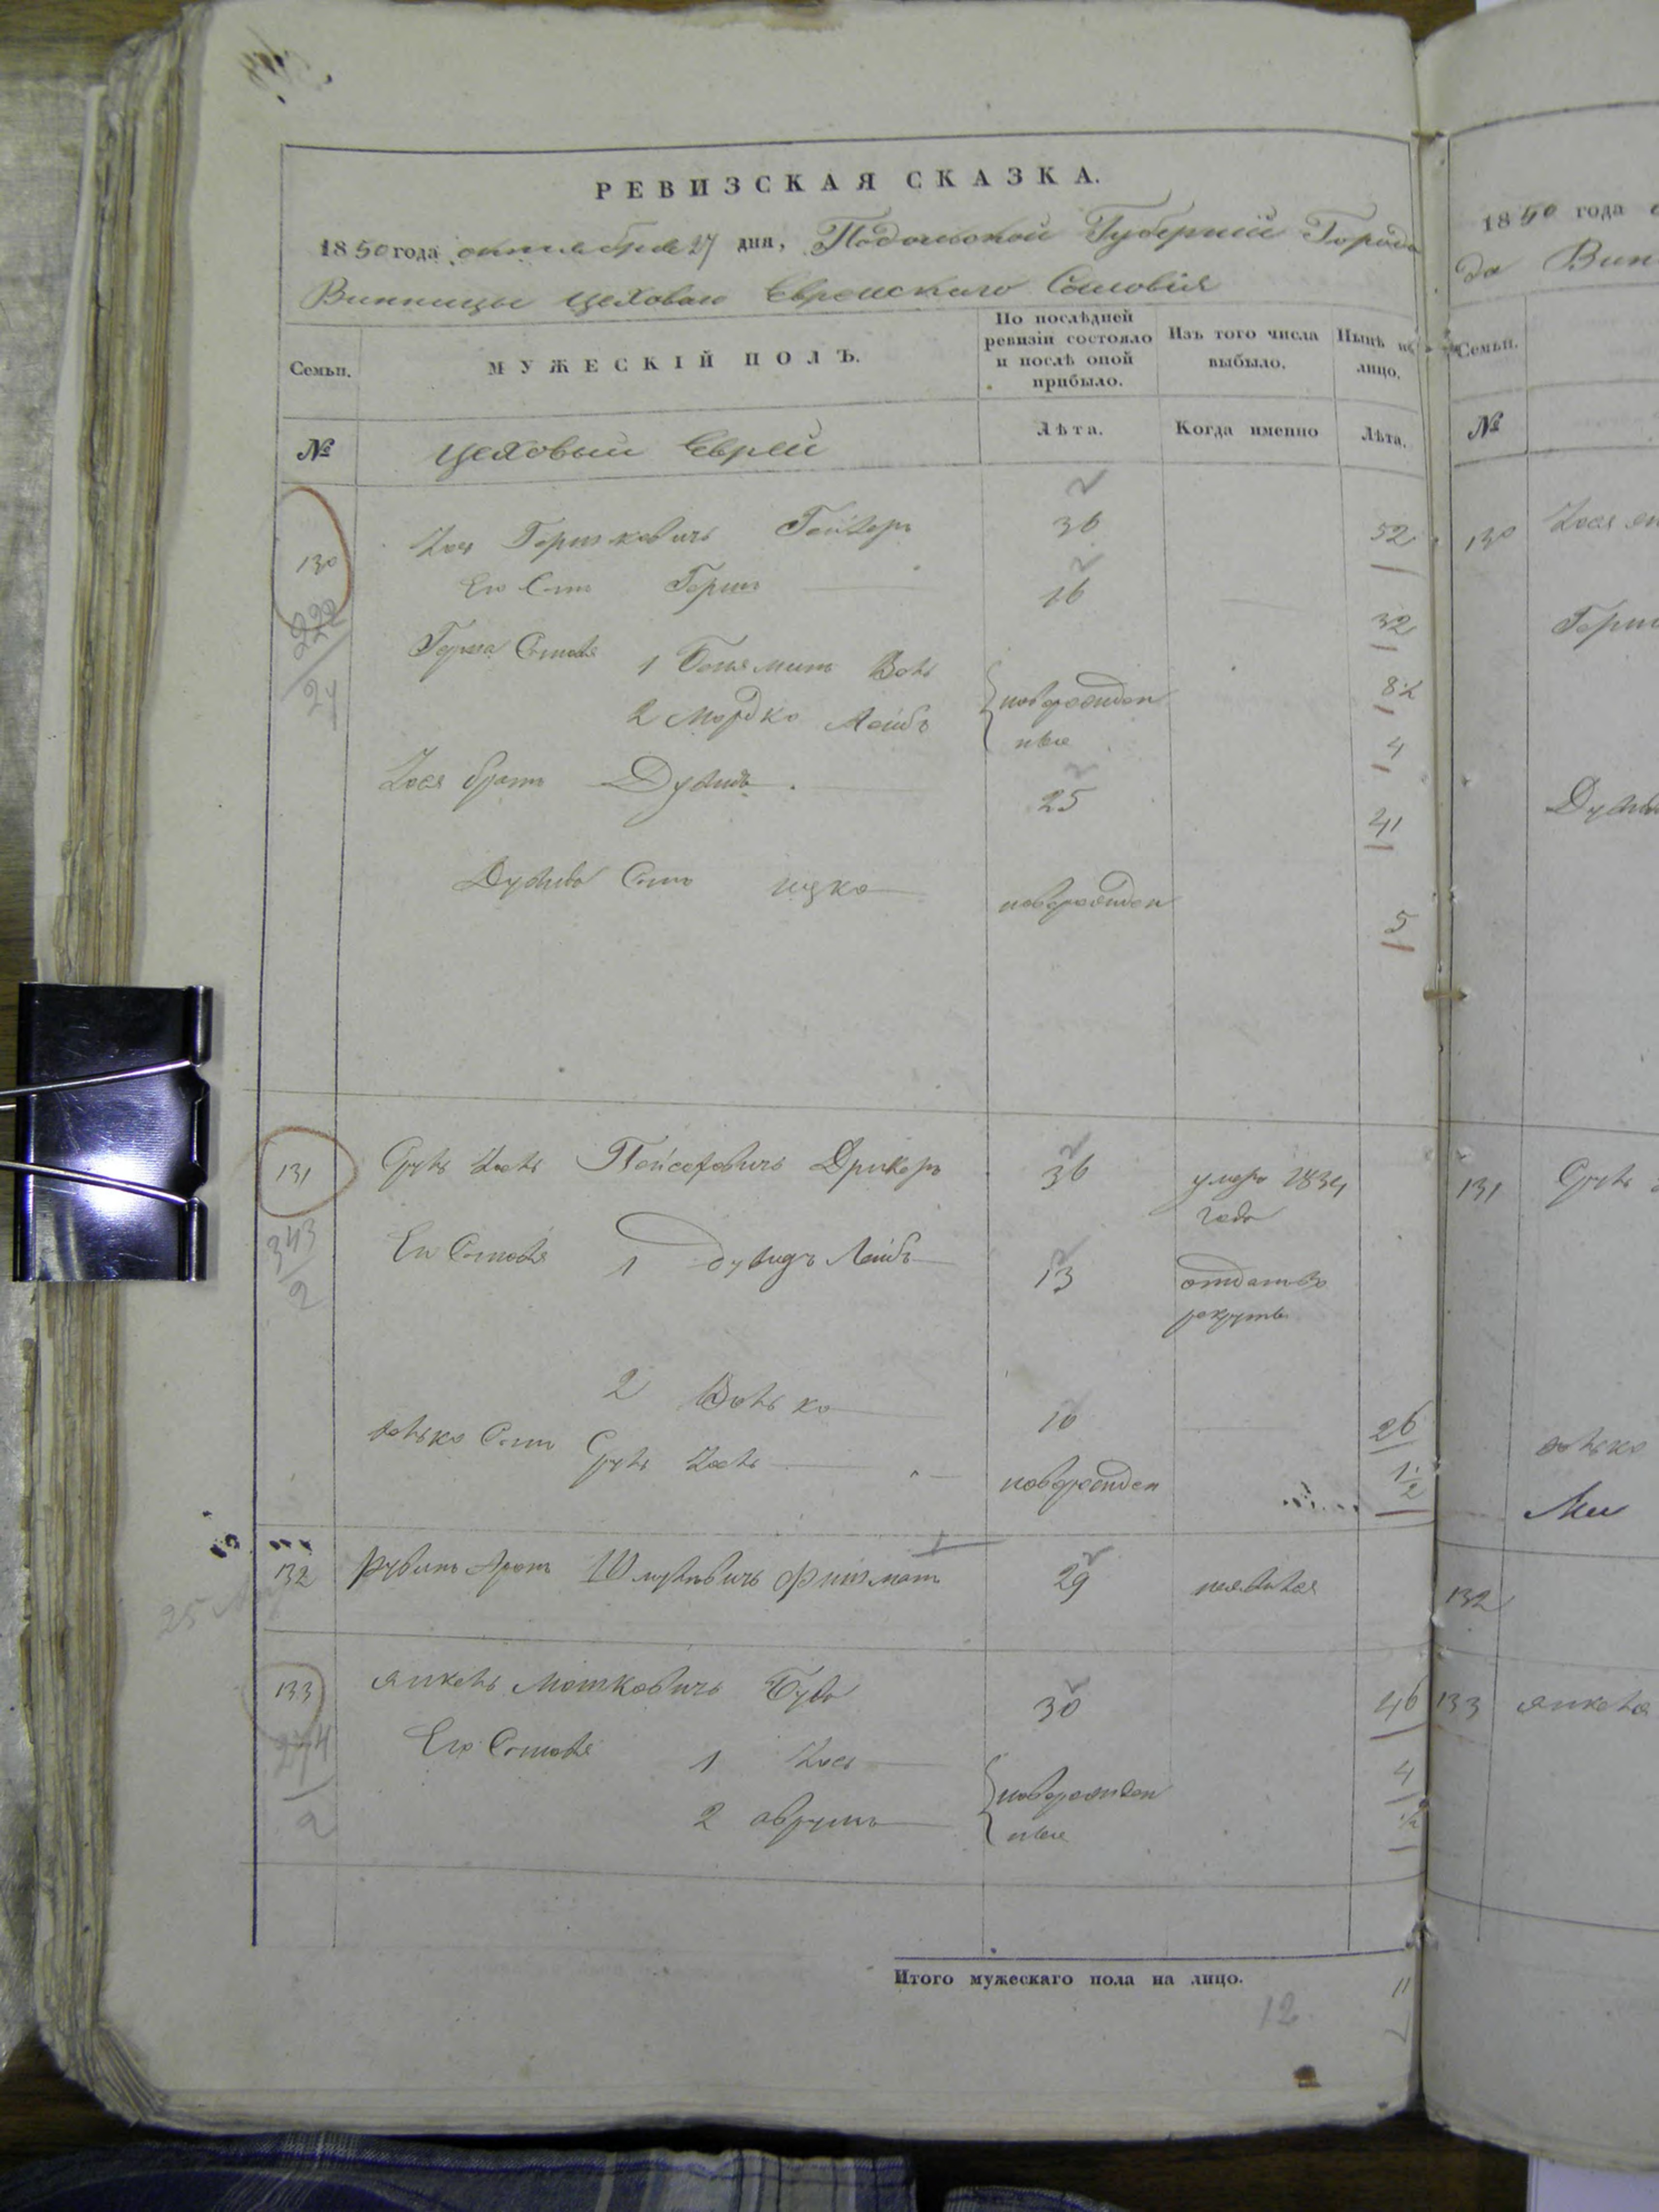 РЕВИЗСКАЯ СКАЗКА.
1850 года октября 27 дня, Подольской Губернии Города
Винницы цехового Еврейскаго Сословія
Семьи.
МУЖЕСКІЙ ПОЛЪ.
По послѣдней ревизіи состояло и послѣ оной прибыло.
Изъ того числа выбыло.
Нынѣ на лицо.
№
цеховыи Евреи
Лѣта.
Когда именно
Лѣта.
130 Гершковичъ 36 52
Его Сынъ Герш 16 32
222
24
Герша Сыновя 1 Бенямин Волъ новорожден 8½
2 Мордко Лейбъ ные 4
братъ Дувидъ 25 41
Дувида Сынъ ицко новорожден 5
131 Пейсаховичъ Дрикеръ 36 умеръ 1834
года
343
2
Его Сыновя 1 Дувидъ Лейбъ 13 отданъ въ
рекруты
2 Волько 10 26
волько Сынъ новорожден 1½
132 Рувинъ Аронъ Шмулевичъ Фишманъ 29 неявился
25
133 янкель Мошковичъ 30 46
274
2
Его Сыновя 1 новорожден 4
2 аврумъ ные ½
Итого мужескаго пола на лицо. 11
12
1850 года
да Вин
Семьи.
№
130
Герш
Дувид
131
волько
132
133 янкеля